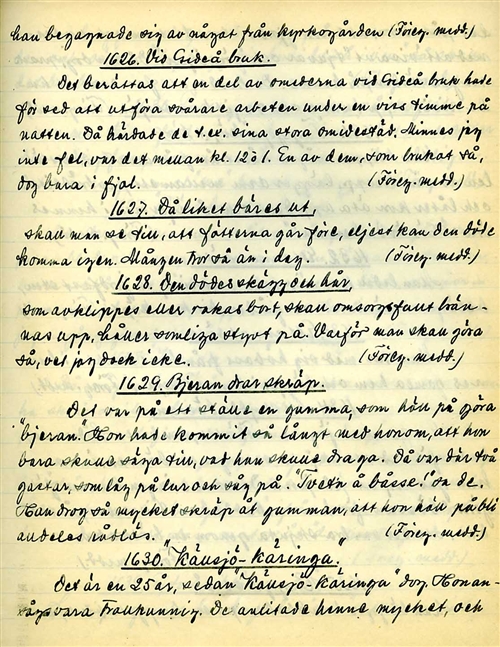 han begagnade sig av något från kyrkogården (Föreg. medd.)
1626. Vid Gideå bruk.
Det berättas att en del av smederna vid Gideå bruk hade
för sed att utföra svårare arbeten under en viss timme på
natten. Då härdade de t.ex. sina stora smidesstäd. Minnes jag
inte fel, var det mellan kl. 12 o 1. En av dem, som brukat så,
dog bara i fjol. (Föreg. medd.)
1627. Då liket bäres ut,
skall man se till, att fötterna går före, eljest kan den döde
komma igen. Mången tror så än i dag. (Föreg. medd.)
1628. Den dödes skägg och hår,
som avklippes eller rakas bort, skall omsorgsfullt brän-
nas upp, håller somliga styvt på. Varför man skall göra
så, vet jag dock icke. (Föreg. medd.)
1629. Bjeran drar skräp.
Det var på ett ställe en gumma, som höll på göra
"bjeran." Hon hade kommit så långt med honom, att hon
bara skulle säga till, vad han skulle draga. Då var där två
gastar, som låg på lur och såg på. "Tvetn å båsse!" sa de.
Han drog så mycket skräp åt gumman, att hon höll på bli
alldeles rådlös. (Föreg. medd.)
1630. "Källsjö-Käringa."
Det är en 25 år, sedan "Källsjö-Käringa" dog. Hon an-
sågs vara trollkunnig. De anlitade henne mycket, och